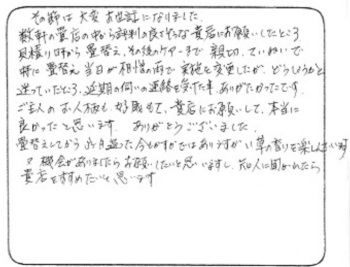 その節は大変お世話になりました。
数軒の貴店の中から評判の良さそうな貴店にお願いしたところ
見積り時から畳替え、その後のケアーまで親切、ていねいで
特に畳替え当日が相憎の雨で実施を変更したが、どうしようかと
迷っていたところ、近期の伺いの連絡を受けた事、ありがたかったです。
ご主人のお人柄も好感もて、貴店にお願いして、本当に
良かったと思います。ありがとうございました。
畳替えしてから 月過った今もかすかではありますがい草の香りを楽しんでいます
又機会がありましたらお願いしたいと思いますし、知人に聞かれたら
貴店をすすめたいと思います